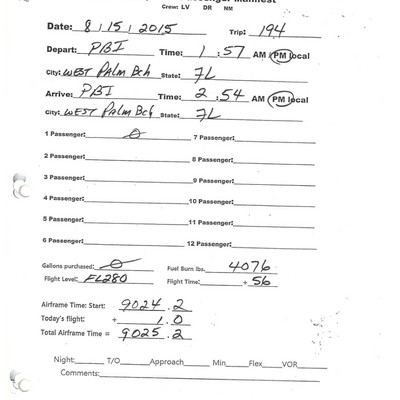 Manifest
Crew: LV DR NM
Date: 8 / 15 / 2015 Trip: 194
Depart: PBI Time: 1 : 57 AM / PM local
City: West Palm Bch State: FL
Arrive: PBI Time: 2 : 54 AM / PM local
City: West Palm Bch State: FL
1 Passenger: 0 7 Passenger:
2 Passenger: 8 Passenger:
3 Passenger: 9 Passenger:
4 Passenger: 10 Passenger:
5 Passenger: 11 Passenger:
6 Passenger: 12 Passenger:
Gallons purchased: 0 Fuel Burn lbs. 4076
Flight Level: FL280 Flight Time: + 56
Airframe Time: Start: 9024.2
Today's flight: + 1.0
Total Airframe Time = 9025.2
Night: T/O Approach Min Flex VOR
Comments: